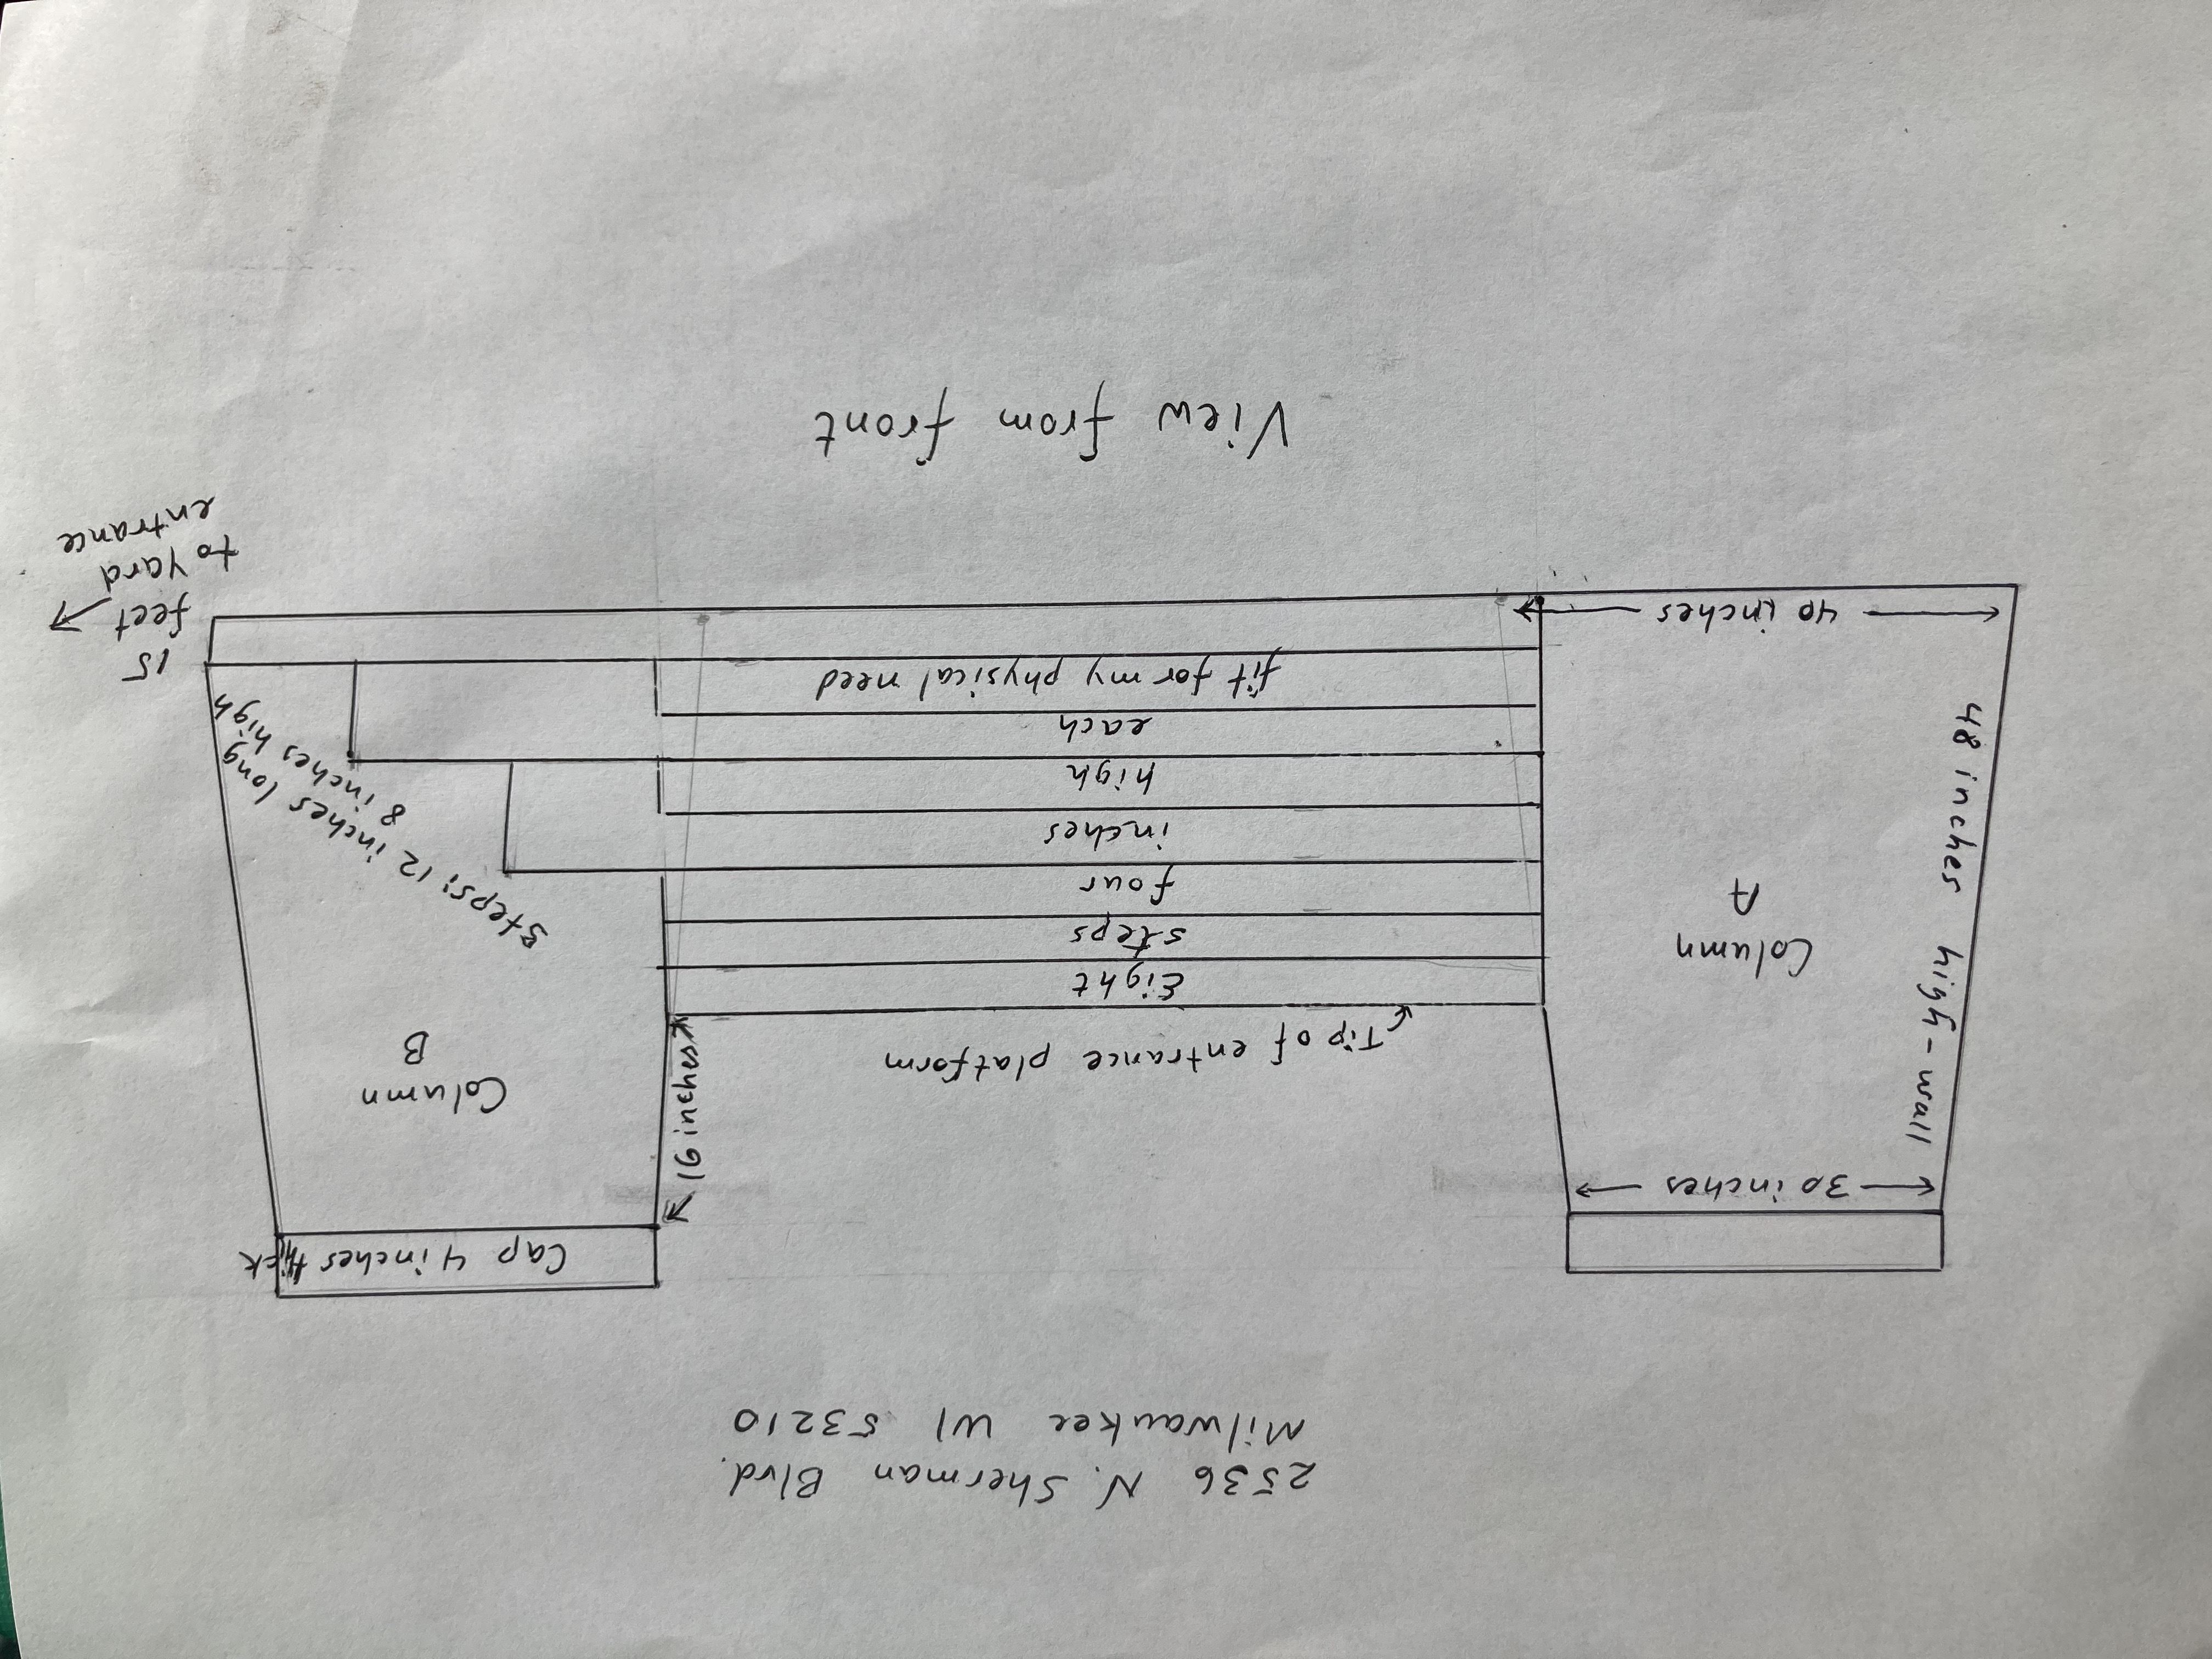 2536 N. Sherman Blvd.
Milwaukee WI 53210
Cap 4 inches thick
30 inches
16 inches
Tip of entrance platform
Column
A
Column
B
48 inches high-wall
Eight
steps
four
inches
high
each
fit for my physical need
Steps; 12 inches long
8 inches high
40 inches
15
feet
to Yard
entrance
View from front